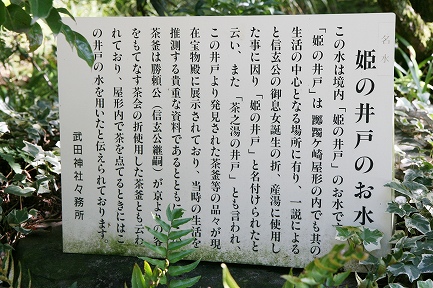 名水
姫の井戸のお水
この水は境内「姫の井戸」のお水で
「姫の井戸」は躑躅ケ崎屋形の内でも其の
生活の中心となる場所に有り、一説による
と信玄公の御息女誕生の折、産湯に使用し
た事に因り、「姫の井戸」と名付けられたと
云い、また「茶之湯の井戸」とも言われ
この井戸より発見された茶釜等の品々が現
在宝物殿に展示されており、当時の生活を
推測する貴重な資料であるととも
茶釜は勝頼公（信玄公継嗣）が京よ
をもてなす茶会の折使用した茶釜とも云わ
れており、屋形内で茶を点てるときにはこ
の井戸の水を用いたと伝えられております。
武田神社々務所